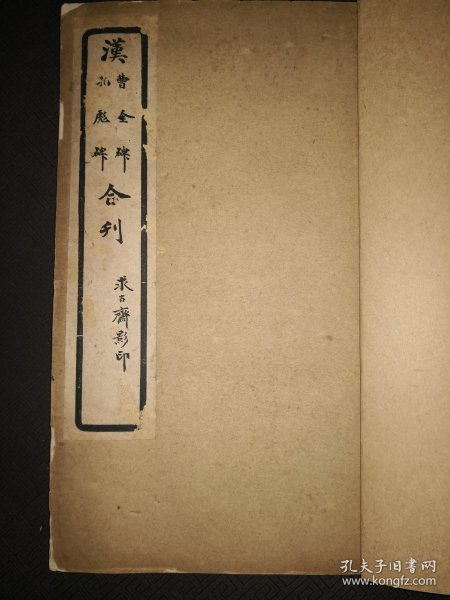 漢曹全碑孔彪碑合刊
求古齋影印
孔夫子旧书网
www.kongfz.com